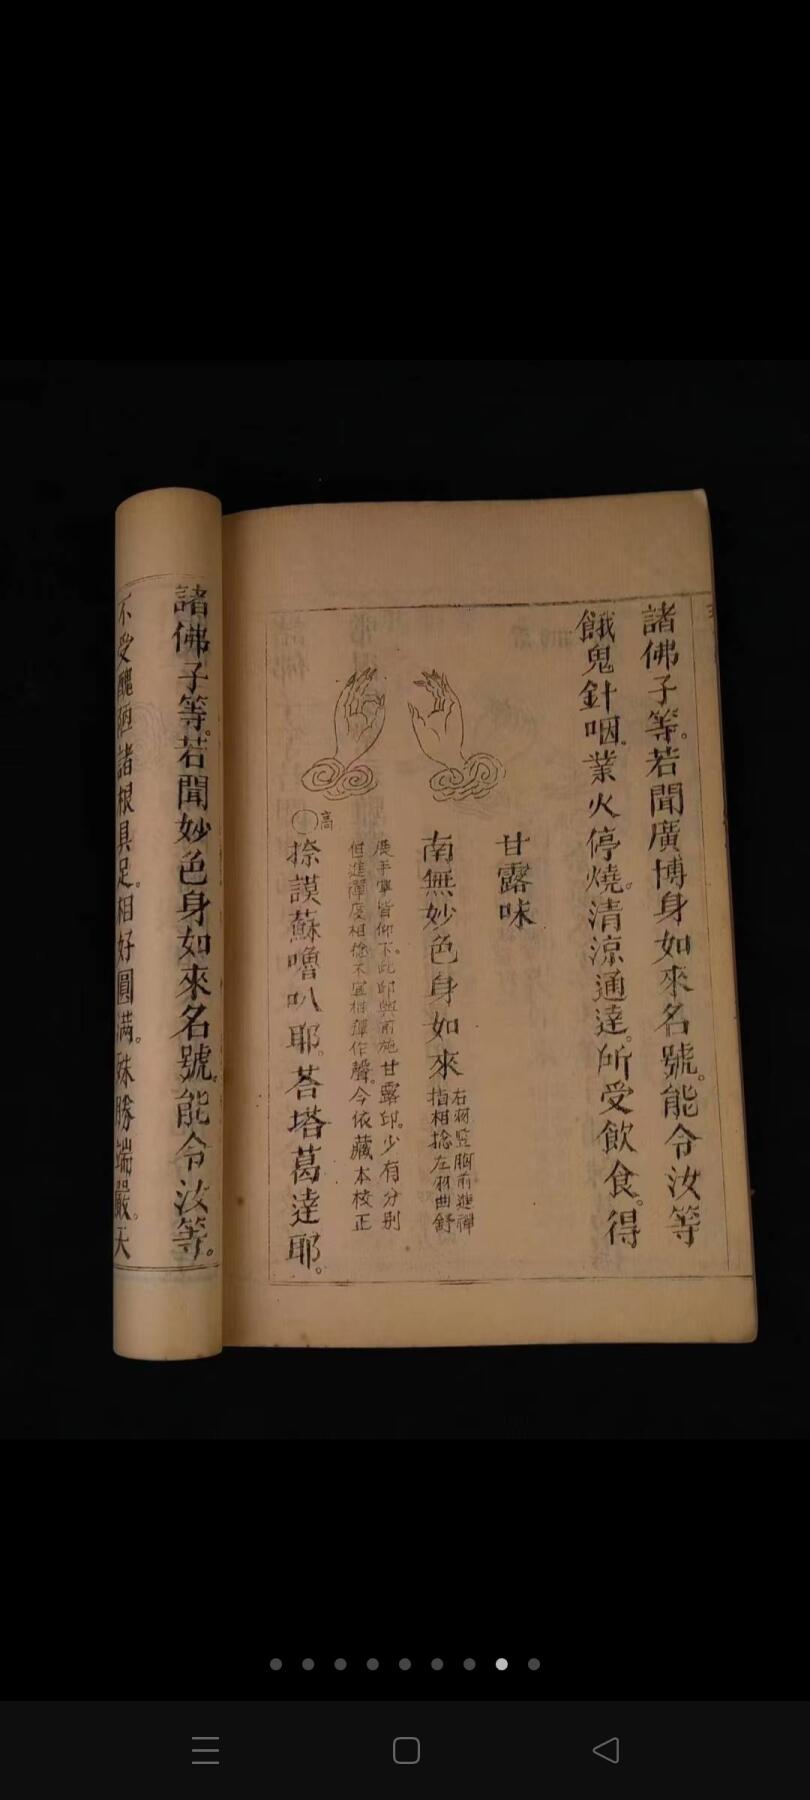 諸佛子等。若聞廣博身如來名號。能令汝等
餓鬼針咽。業火停燒。清涼通達。所受飲食。得
甘露味
南無妙色身如來
右羽竪胸前進禪
指相捻左羽曲舒
展手掌皆仰下。此印與前施甘露印。少有分別
但進禪度相捻不宜相彈作聲。今依藏本校正
高
捺謨蘇嚕叭耶。荅塔葛達耶。
諸佛子等。若聞妙色身如來名號。能令汝等。
不受醜陋諸根具足。相好圓滿。殊勝端嚴。天